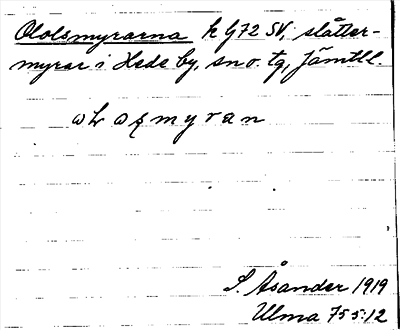 Ololsmyrarna k G72 SV, slåtter-
myrar i Hede by, sn o. tg, Jämtl l.
myran
S. Åsander 1919
Ulma 755:12